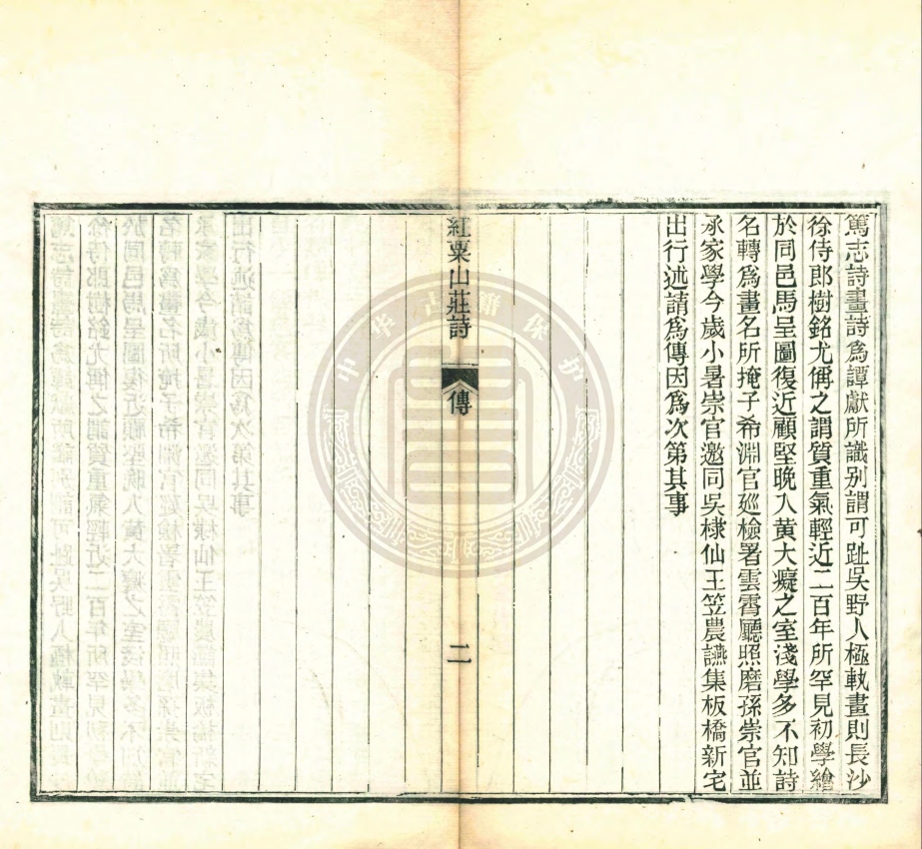 篤志詩畫詩為譚獻所識別謂可趾吳野人極執畫則長沙
徐侍郎樹銘尤偁之謂質重氣輕近二百年所罕見初學繪
於同邑馬呈圖復近顧堅晚入黃大癡之室淺學多不知詩
名轉為畫名所掩子希淵官廵檢署雲霄廳照磨孫崇官並
承家學今歲小暑崇官邀同吳棣仙王笠農讌集板橋新宅
出行述請為傳因為次第其事
紅粟山莊詩
傳
二
中华古籍保护